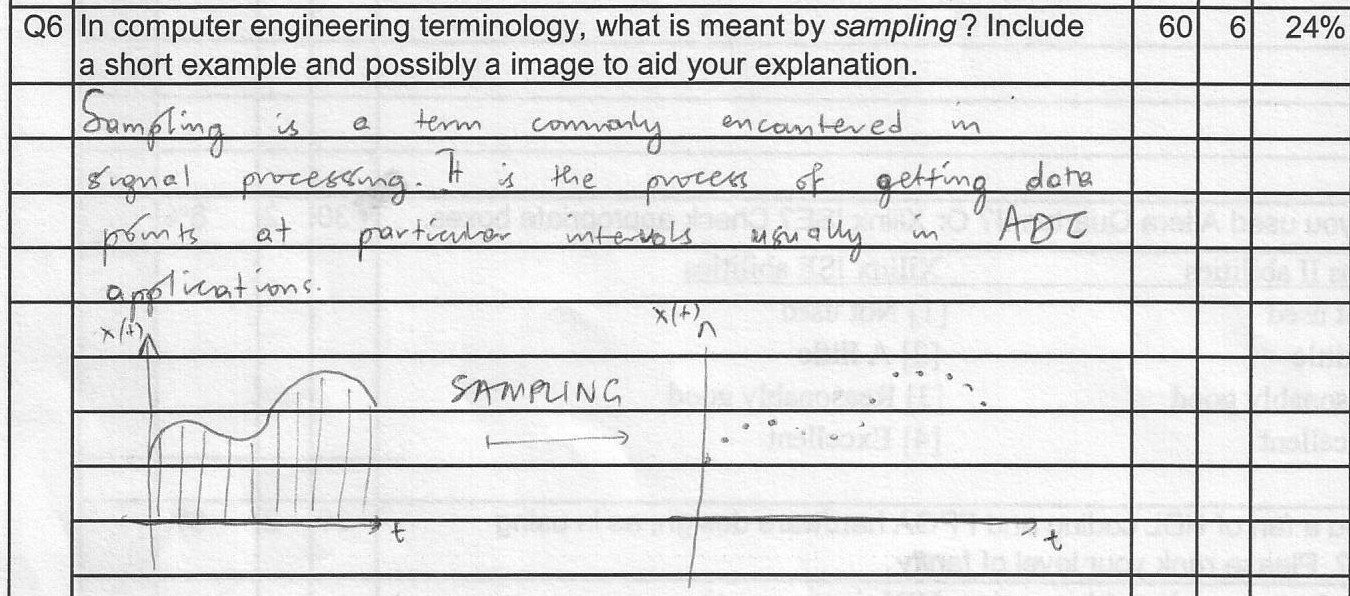 Q6 In computer engineering terminology, what is meant by sampling? Include 60 6 24%
a short example and possibly a image to aid your explanation.
Sampling is a term commonly encountered in
signal processing. It is the process of getting data
points at particular intervals usually in ADC
applications.
x(t) x(t)
SAMPLING
t t